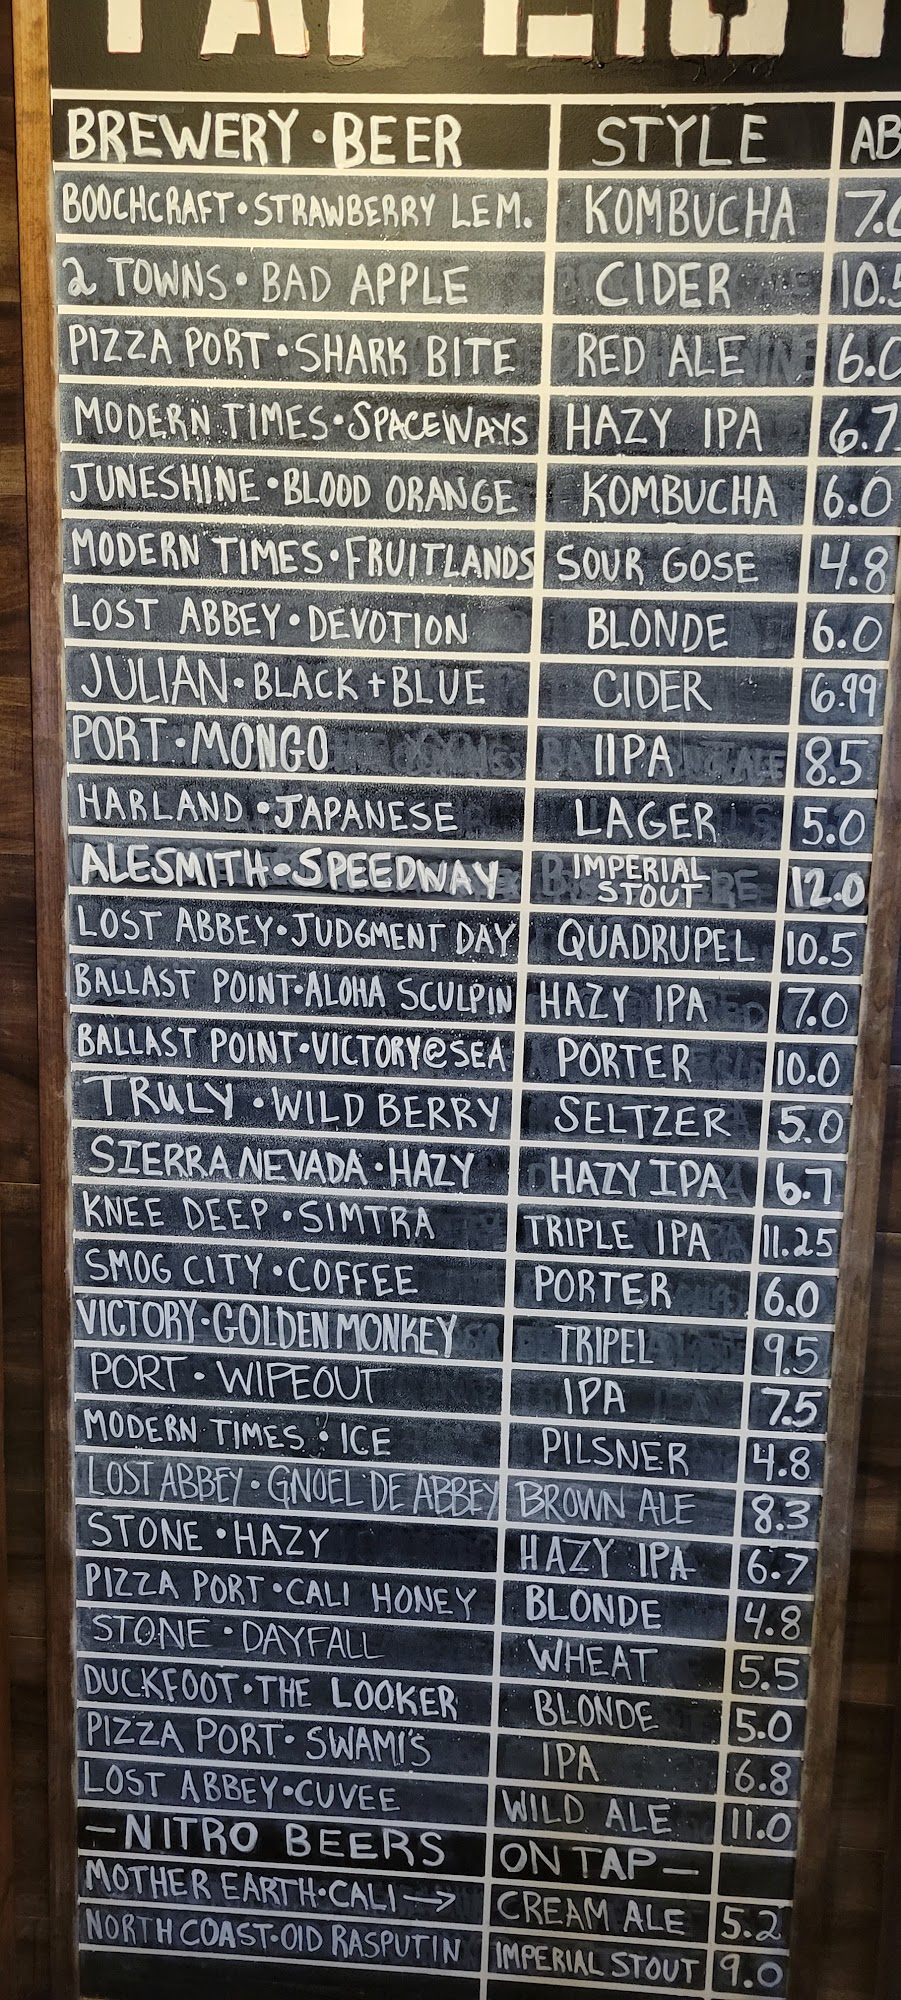 TAP LIST
BREWERY • BEER STYLE AB
BOOCHCRAFT • STRAWBERRY LEM. KOMBUCHA 7.0
2 TOWNS • BAD APPLE CIDER 10.5
PIZZA PORT • SHARK BITE RED ALE 6.0
MODERN TIMES • SPACEWAYS HAZY IPA 6.7
JUNESHINE • BLOOD ORANGE KOMBUCHA 6.0
MODERN TIMES • FRUITLANDS SOUR GOSE 4.8
LOST ABBEY • DEVOTION BLONDE 6.0
JULIAN • BLACK + BLUE CIDER 6.99
PORT • MONGO IIPA 8.5
HARLAND • JAPANESE LAGER 5.0
ALESMITH • SPEEDWAY IMPERIAL STOUT 12.0
LOST ABBEY • JUDGMENT DAY QUADRUPEL 10.5
BALLAST POINT • ALOHA SCULPIN HAZY IPA 7.0
BALLAST POINT • VICTORY@SEA PORTER 10.0
TRULY • WILD BERRY SELTZER 5.0
SIERRA NEVADA • HAZY HAZY IPA 6.7
KNEE DEEP • SIMTRA TRIPLE IPA 11.25
SMOG CITY • COFFEE PORTER 6.0
VICTORY • GOLDEN MONKEY TRIPEL 9.5
PORT • WIPEOUT IPA 7.5
MODERN TIMES • ICE PILSNER 4.8
LOST ABBEY • GNOEL DE ABBEY BROWN ALE 8.3
STONE • HAZY HAZY IPA 6.7
PIZZA PORT • CALI HONEY BLONDE 4.8
STONE • DAYFALL WHEAT 5.5
DUCKFOOT • THE LOOKER BLONDE 5.0
PIZZA PORT • SWAMI'S IPA 6.8
LOST ABBEY • CUVEE WILD ALE 11.0
— NITRO BEERS ON TAP —
MOTHER EARTH • CALI → CREAM ALE 5.2
NORTH COAST • OLD RASPUTIN IMPERIAL STOUT 9.0